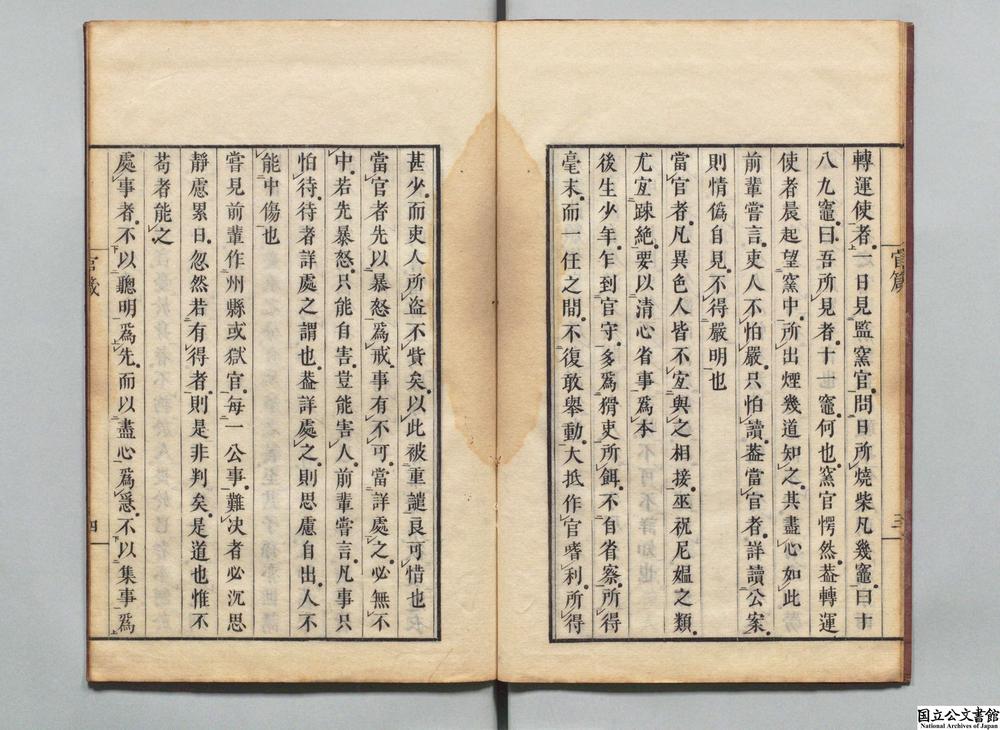 轉運使者一日見監窯官問日所燒柴凡幾竈曰十
八九竈曰吾所見者十一竈何也窯官愕然蓋轉運
使者晨起望窯中所出煙幾道知之其盡心如此
前輩嘗言吏人不怕嚴只怕讀蓋當官者詳讀公案
則情僞自見不得嚴明也
當官者凡異色人皆不宜與之相接巫祝尼媼之類
尤宜疎絶要以清心省事爲本
後生少年乍到官守多爲猾吏所餌不自省察所得
毫末而一任之間不復敢舉動大抵作官嗜利所得
官箴
三
甚少而吏人所盗不貲矣以此被重譴良可惜也
當官者先以暴怒爲戒事有不可當詳處之必無不
中若先暴怒只能自害豈能害人前輩嘗言凡事只
怕待待者詳處之謂也蓋詳處之則思慮自出人不
能中傷也
嘗見前輩作州縣或獄官每一公事難决者必沉思
靜慮累日忽然若有得者則是非判矣是道也惟不
苟者能之
處事者不以聰明爲先而以盡心爲急不以集事爲
官箴
四
国立公文書館
National Archives of Japan